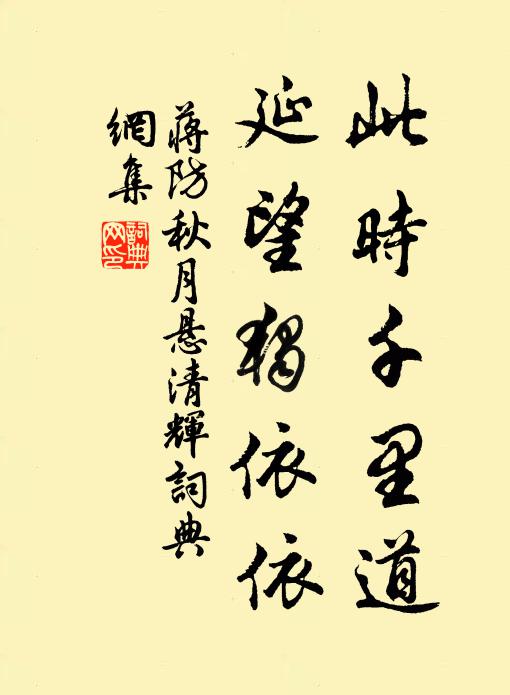 此時千里道
延望獨依依
蔣防秋月悬清輝詞典
網集
詞典
网印